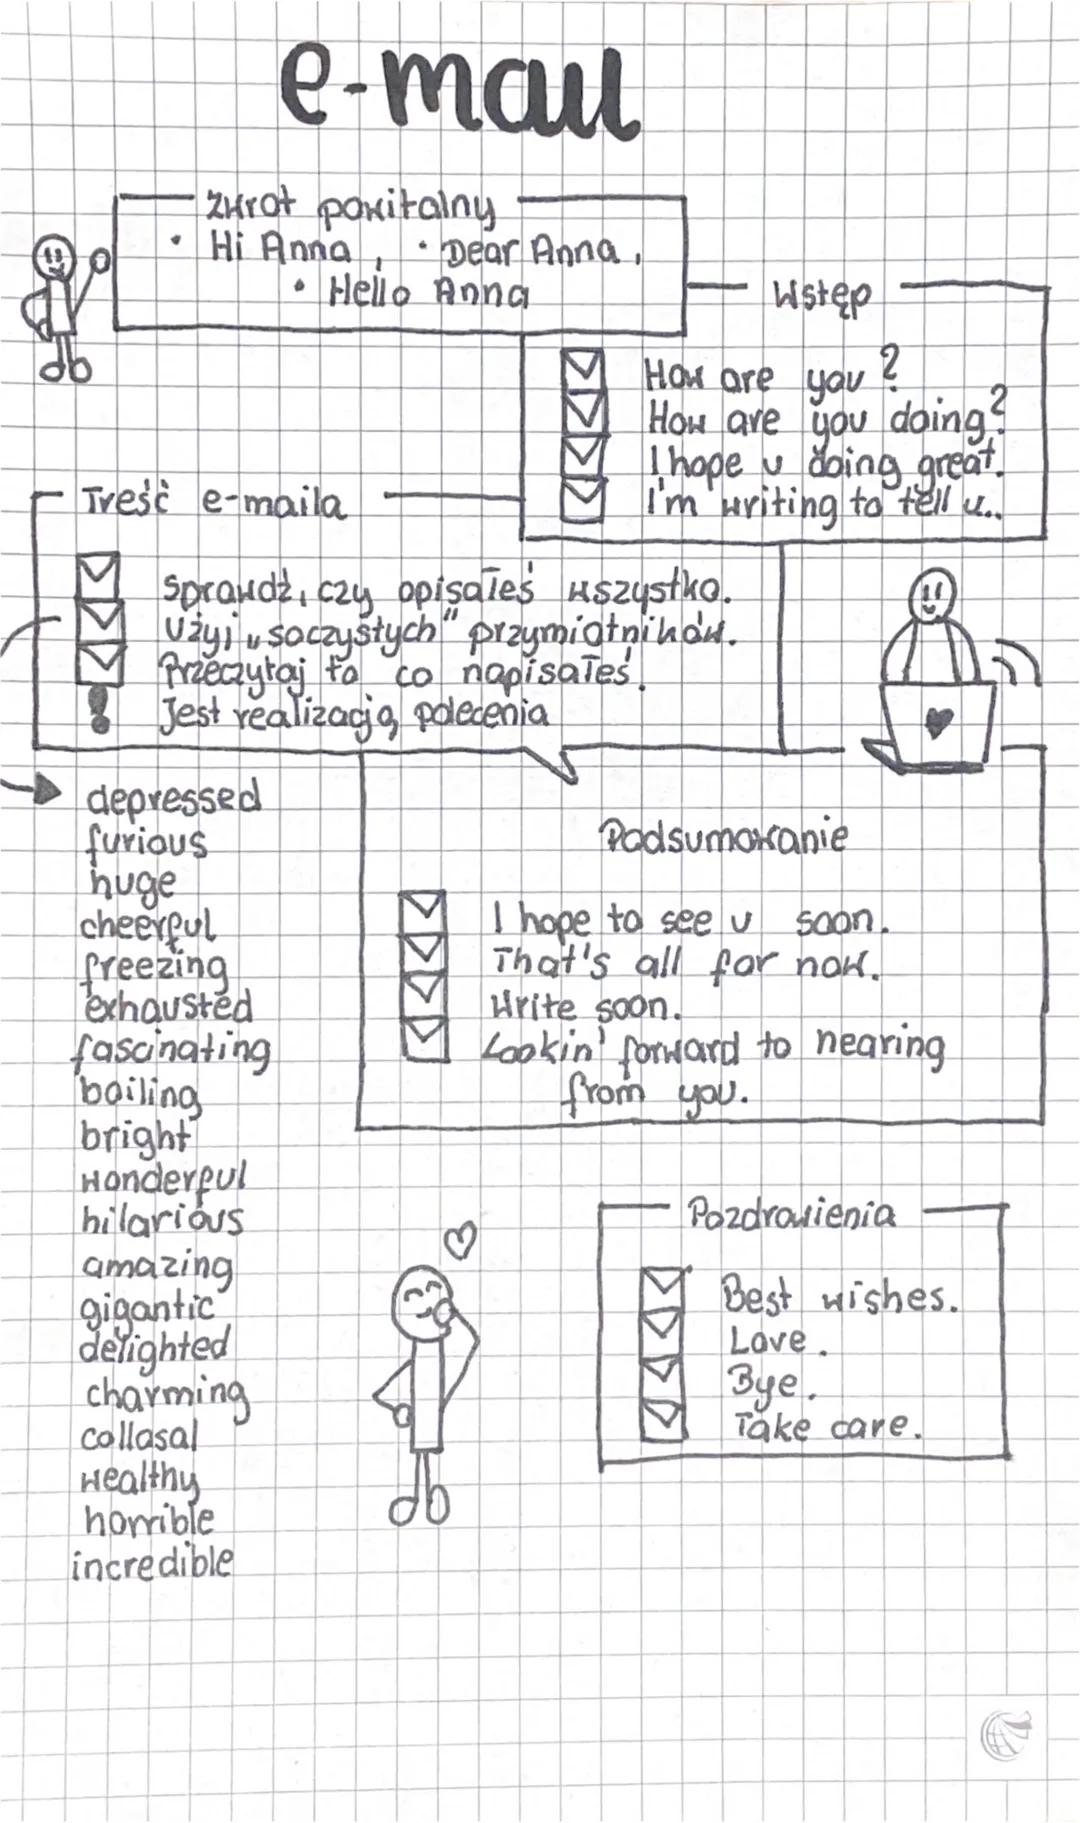 e-mail
zwrot powitalny
• Hi Anna, • Dear Anna,
• Hello Anna
Wstęp
How are you?
How are you doing?
I hope u doing great.
I'm writing to tell u...
Treść e-maila
Sprawdź, czy opisałeś wszystko.
Użyj „soczystych" przymiotników.
Przeczytaj to co napisałeś.
! Jest realizacją polecenia
depressed
furious
huge
cheerful
freezing
exhausted
fascinating
boiling
bright
wonderful
hilarious
amazing
gigantic
delighted
charming
collasal
wealthy
horrible
incredible
Podsumowanie
I hope to see u soon.
That's all for now.
Write soon.
Lookin' forward to hearing
from you.
Pozdrowienia
Best wishes.
Love.
Bye.
Take care.